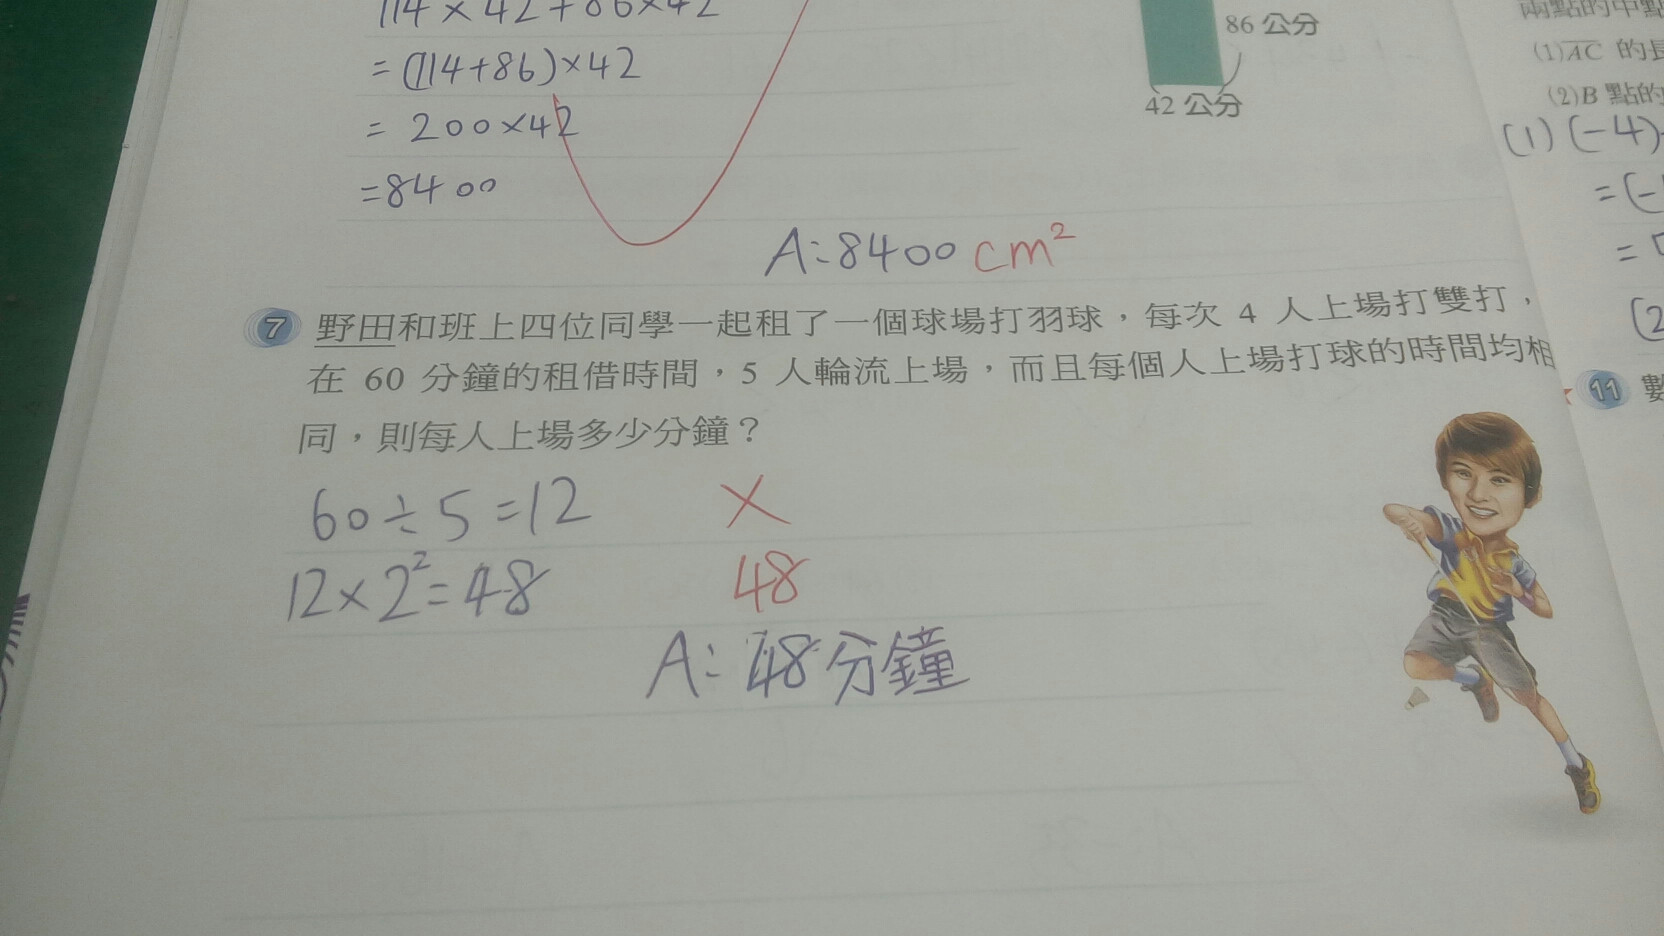 114×42+86×42
=(114+86)×42
=200×42
=8400
A:8400cm²
86公分
42公分
7 野田和班上四位同學一起租了一個球場打羽球，每次 4 人上場打雙打，
在 60 分鐘的租借時間，5 人輪流上場，而且每個人上場打球的時間均相
同，則每人上場多少分鐘？
60÷5=12
12×2²=48
×
48
A:48分鐘
兩點的中點
(1)AC 的長
(2)B 點的
(1)(-4)
=(-
=
(2
11 數